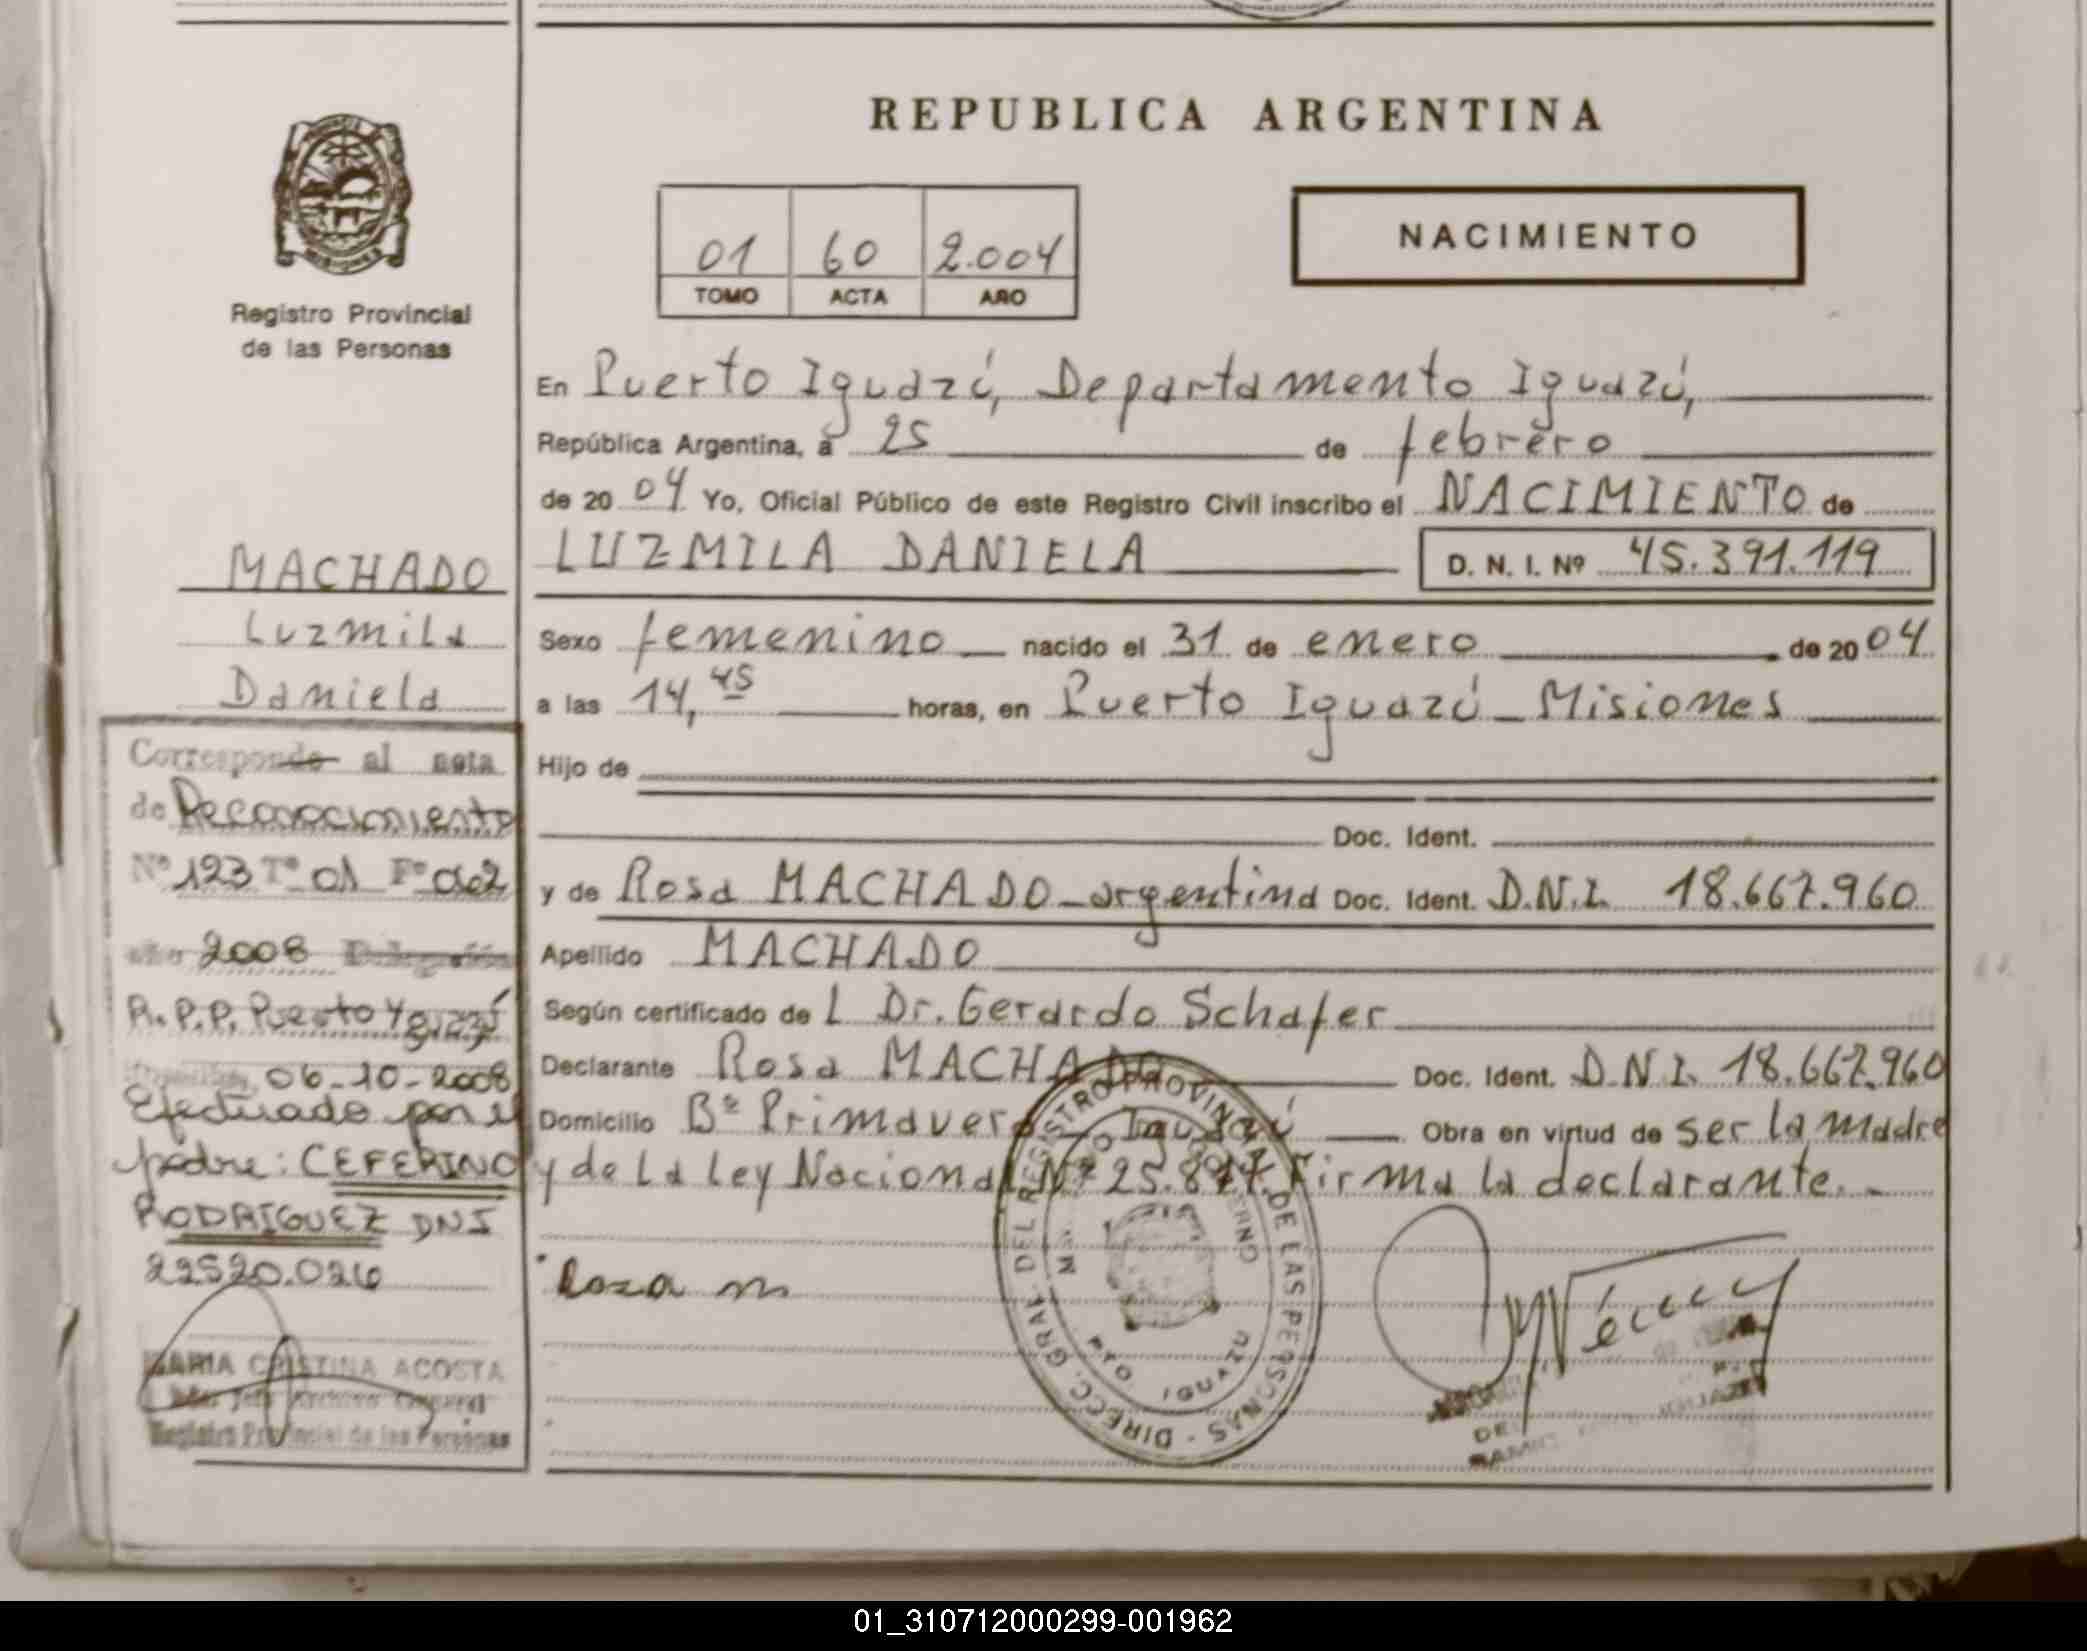 REPUBLICA ARGENTINA
01 60 2.004
TOMO ACTA AÑO
NACIMIENTO
Registro Provincial
de las Personas
En Puerto Iguazú, Departamento Iguazú,
República Argentina, a 25 de febrero
de 2004 Yo, Oficial Público de este Registro Civil inscribo el NACIMIENTO de
LUZMILA DANIELA D. N. I. Nº 45.391.119
Sexo femenino nacido el 31 de enero de 2004
a las 14,45 horas, en Puerto Iguazú - Misiones
Hijo de
Doc. Ident.
y de Rosa MACHADO - argentina Doc. Ident. D.N.I. 18.667.960
Apellido MACHADO
Según certificado de L Dr. Gerardo Schafer
Declarante Rosa MACHADO Doc. Ident. D.N.I. 18.667.960
Domicilio Bº Primavera - Iguazú Obra en virtud de ser la madre
y de La Ley Nacional Nº 25.819. Firma la declarante. -
Roza m
MACHADO
Luzmila
Daniela
Corresponde al nota
de Reconocimiento
Nº 123 Tº 01 Fº 062
año 2008 Delegación
R.P.P. Puerto Yguazú
06-10-2008
Efectuado por el
padre: CEFERINO
RODRIGUEZ DNI
22520.026
MARIA CRISTINA ACOSTA
Jefa Archivo General
Registro Provincial de las Personas
DIREC. GRAL. DEL REGISTRO PROVINCIAL DE LAS PERSONAS
PTO IGUAZU
01_310712000299-001962